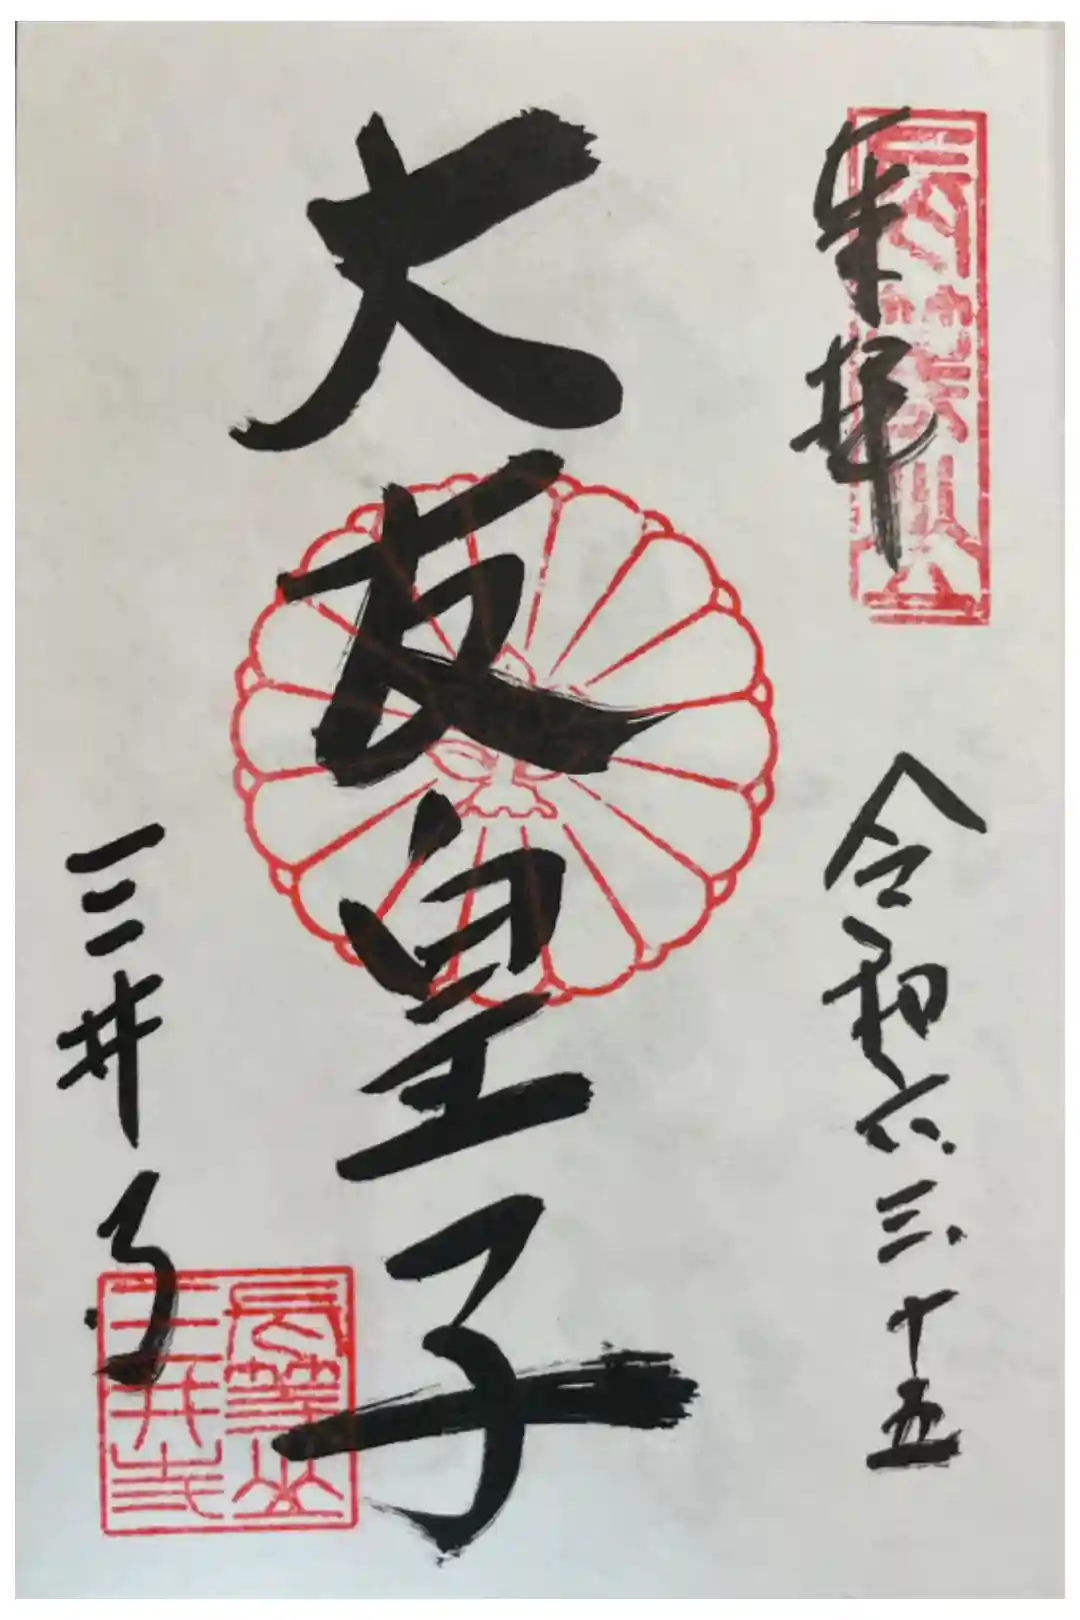 奉拝
長等山
令和六.三.十五
大友皇子
三井寺
長等山
三井寺